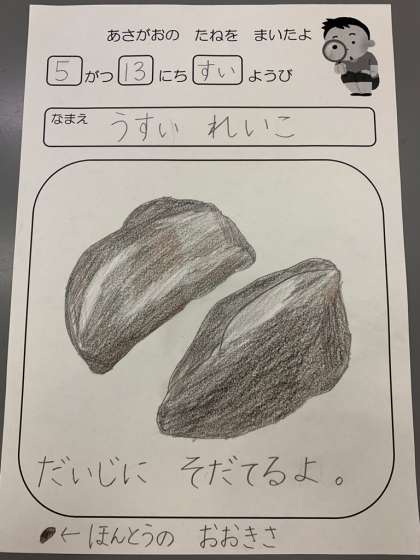 あさがおの たねを まいたよ
5 がつ 13 にち すい ようび
なまえ うすい れいこ
だいじに そだてるよ。
← ほんとうの おおきさ